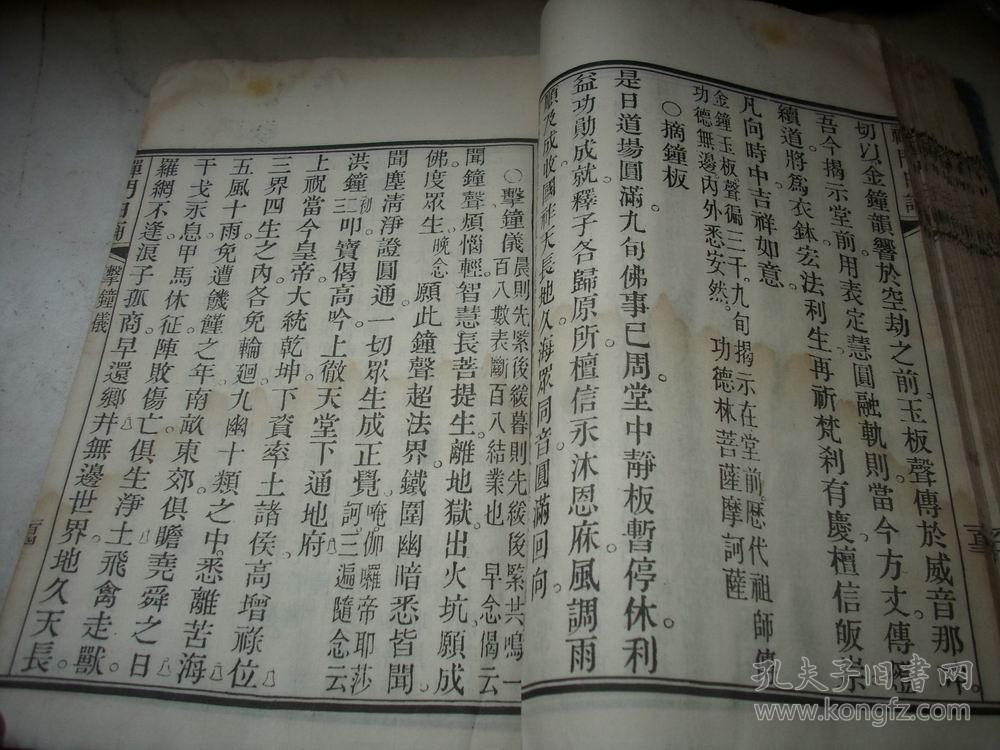 切以金鐘韻響於空劫之前玉板聲傳於威音那
吾今揭示堂前用表定慧圓融軌則當今方丈傳
續道將爲衣鉢宏法利生再祈梵刹有慶檀信皈崇
凡向時中吉祥如意
金鐘玉板聲徧三千九旬揭示在堂前歷代祖師傳
功德無邊內外悉安然 功德林菩薩摩訶薩
○摘鐘板
是日道場圓滿九旬佛事已周堂中靜板暫停休利
益功勛成就釋子各歸原所檀信永沐恩庥風調雨
順及成收國祚天長地久海眾同音圓滿回向
○擊鐘儀 晨則先緊後緩暮則先緩後緊共鳴一
百八數表斷百八結業也 早念偈云
聞鐘聲煩惱輕智慧長菩提生離地獄出火坑願成
佛度眾生 晚念 願此鐘聲超法界鐵圍幽暗悉皆聞
聞塵清淨證圓通一切眾生成正覺 唵伽囉帝耶莎
訶三遍隨念云
洪鐘初三叩寶偈高吟上徹天堂下通地府
上祝當今皇帝大統乾坤下資率土諸侯高增祿位
三界四生之內各免輪廻九幽十類之中悉離苦海
五風十雨免遭饑饉之年南畝東郊俱瞻堯舜之日
干戈永息甲馬休征陣敗傷亡俱生淨土飛禽走獸
羅網不逢浪子孤商早還鄉井無邊世界地久天長
禪門日誦 擊鐘儀
孔夫子旧书网
www.kongfz.com